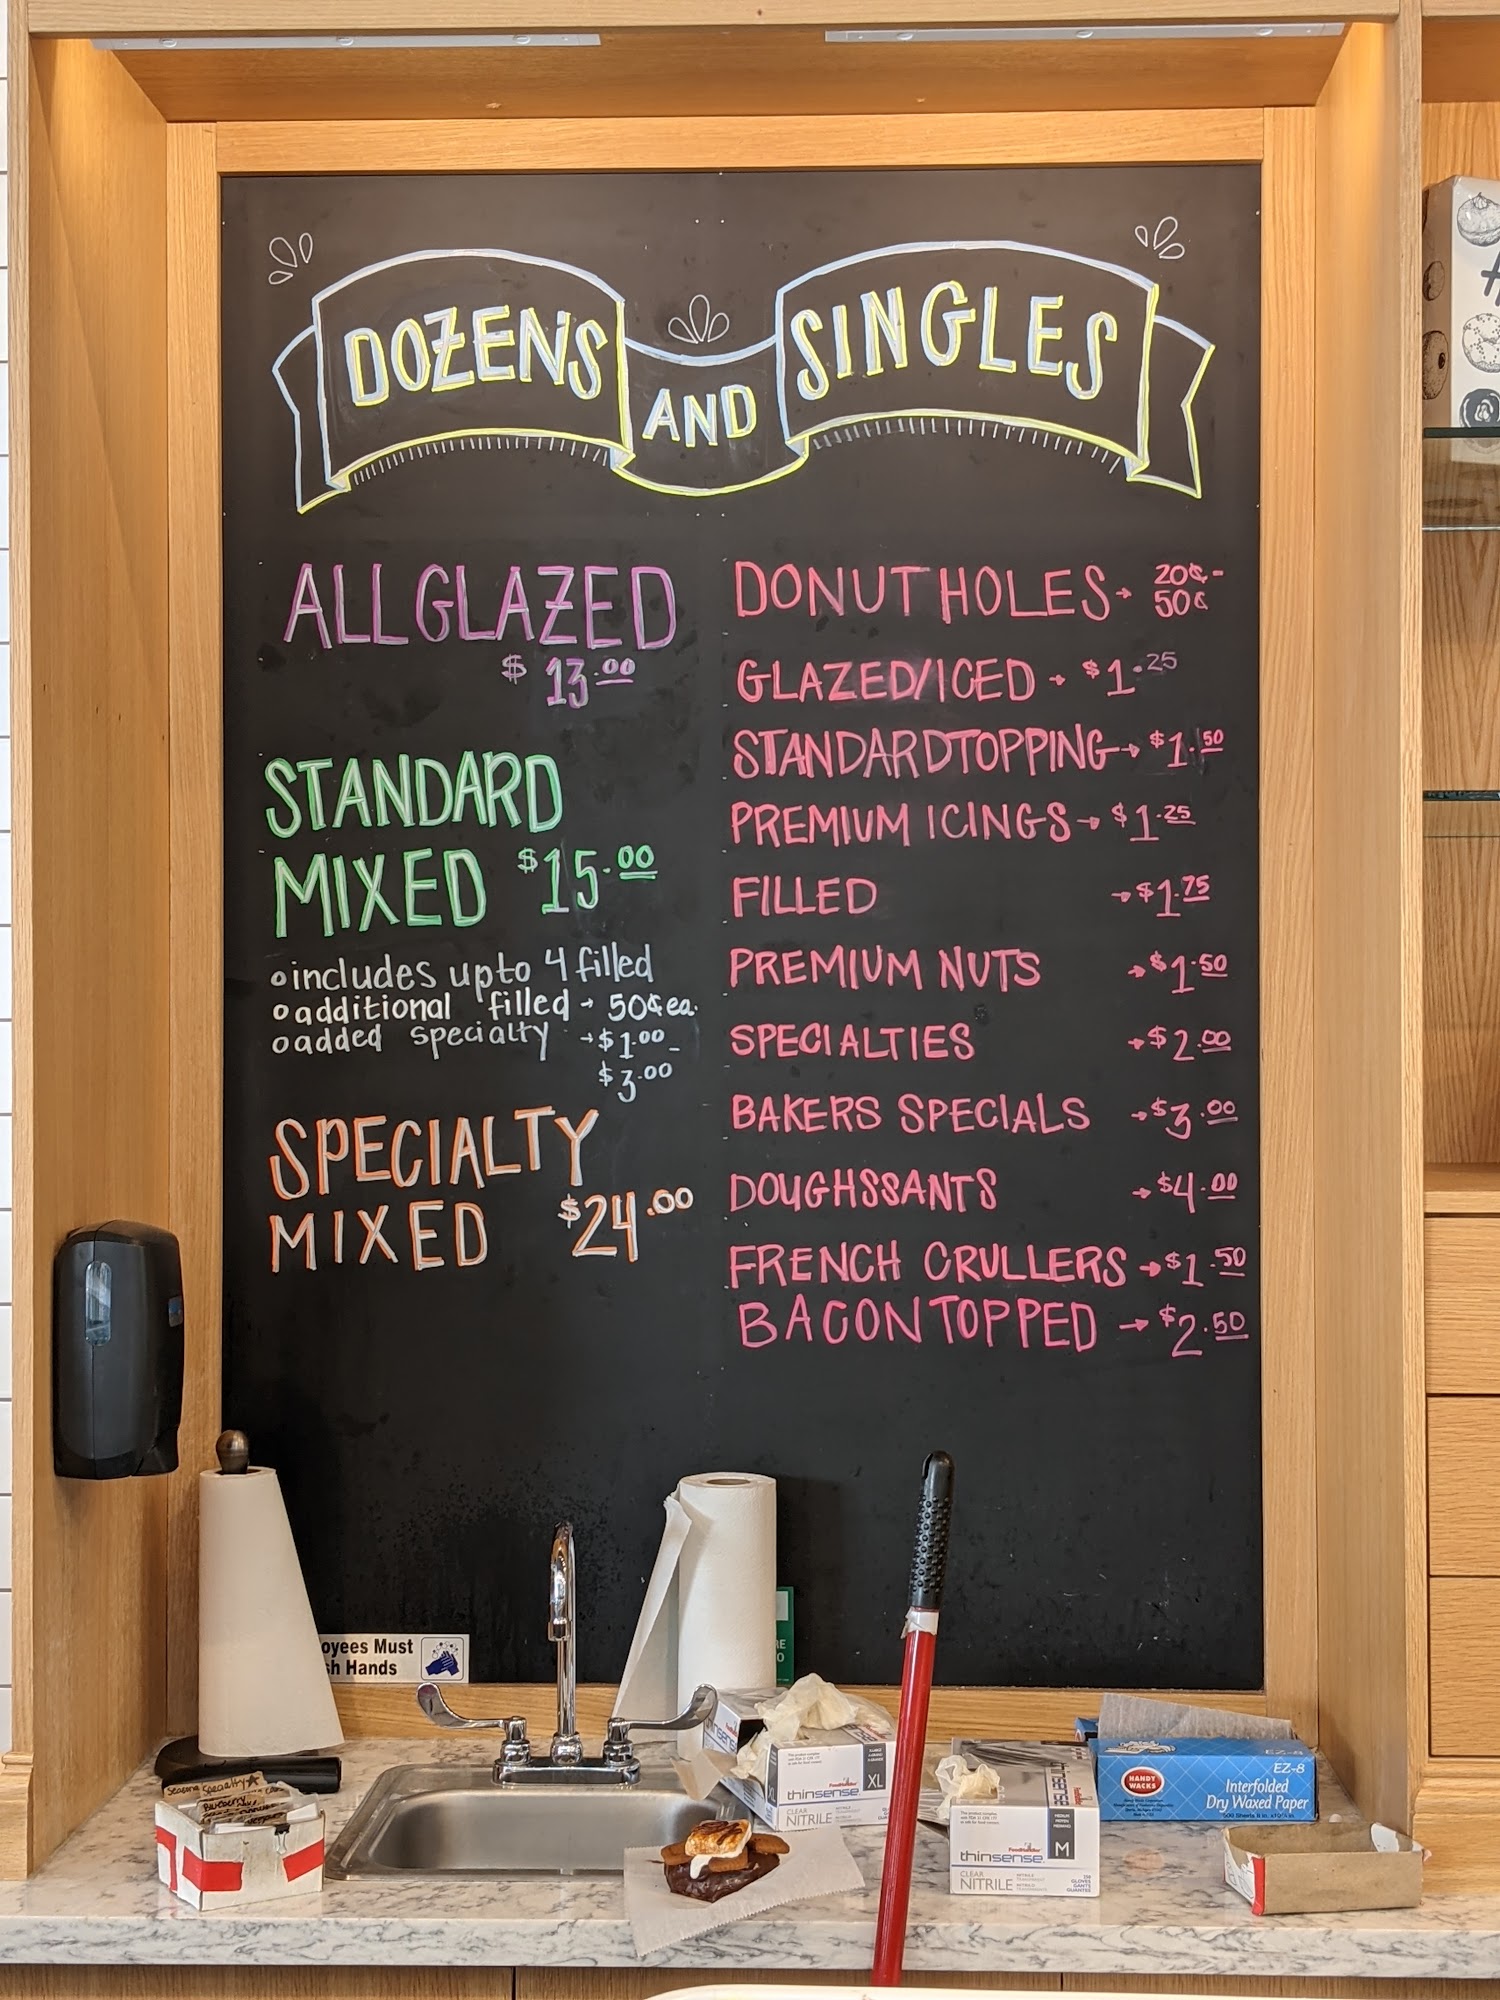 DOZENS AND SINGLES
ALL GLAZED
$ 13.00
STANDARD
MIXED $15.00
includes up to 4 filled
additional filled → 50¢ ea.
added specialty → $1.00 -
$3.00
SPECIALTY
MIXED $24.00
DONUT HOLES → 20¢ -
50¢
GLAZED/ICED → $1.25
STANDARD TOPPING → $1.50
PREMIUM ICINGS → $1.25
FILLED → $1.75
PREMIUM NUTS → $1.50
SPECIALTIES → $2.00
BAKERS SPECIALS → $3.00
DOUGHSSANTS → $4.00
FRENCH CRULLERS → $1.50
BACON TOPPED → $2.50
oyees Must
sh Hands
Specialty
Blueberry
thinsense XL
CLEAR
NITRILE
FoodHandler
thinsense M
CLEAR
NITRILE
HANDY
WACKS
EZ-8
Interfolded
Dry Waxed Paper